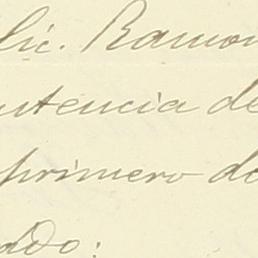 lic. Ramon
utencia de
primero de
ado: